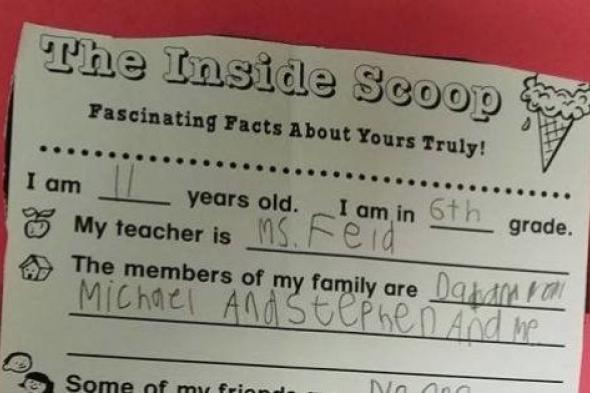 The Inside Scoop
Fascinating Facts About Yours Truly!
I am 11 years old. I am in 6th grade.
My teacher is Ms. Feid
The members of my family are
Michael And Stephen And me.
Some of my friends